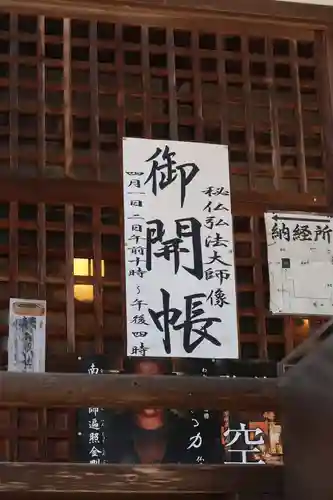 秘仏弘法大師像
御開帳
四月一日二日午前十時～午後四時
納経所
南
師遍照金剛
力
空